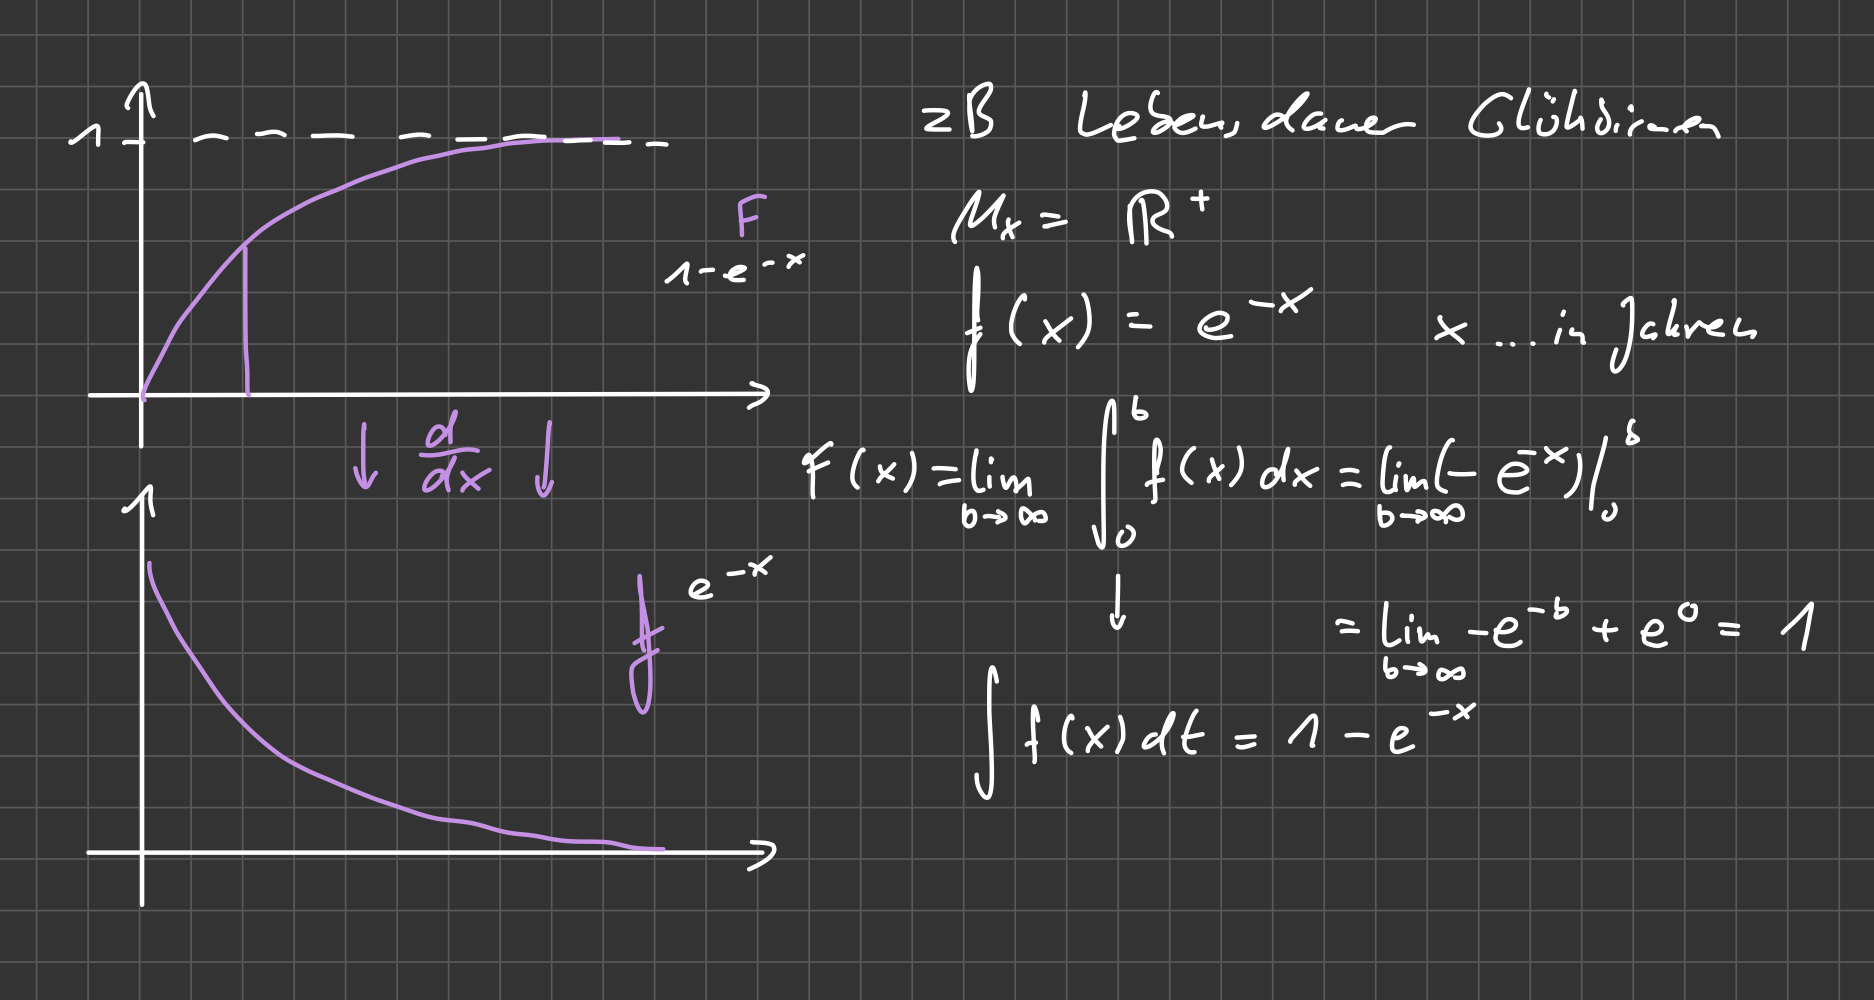 1
F
1 - e^-x
d/dx
e^-x
f
zB Lebensdauer Glühbirnen
M_x = ℝ^+
f(x) = e^-x x ... in Jahren
F(x) = lim_{b→∞} ∫_0^b f(x) dx = lim_{b→∞} (- e^-x) |_0^b
= lim_{b→∞} -e^-b + e^0 = 1
∫ f(x) dt = 1 - e^-x